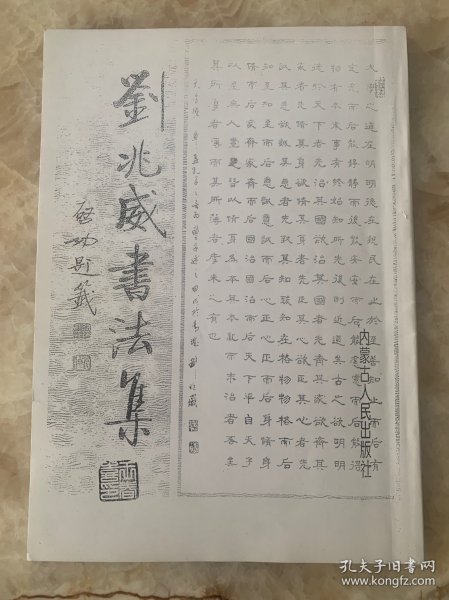 劉兆威書法集
啟功題籤
大學之道在明明德在親民在止於至善知止而后有
定定而后能靜靜而后能安安而后能慮慮而后能得
物有本末事有終始知所先後則近道矣古之欲明明
德於天下者先治其國欲治其國者先齊其家欲齊其
家者先脩其身欲脩其身者先正其心欲正其心者先
誠其意欲誠其意者先致其知致知在格物物格而后
知至知至而后意誠意誠而后心正心正而后身脩身
脩而后家齊家齊而后國治國治而后天下平自天子
以至於庶人壹是皆以脩身為本其本亂而末治者否矣
其所厚者薄而其所薄者厚未之有也
内蒙古人民出版社
孔夫子旧书网
www.kongfz.com